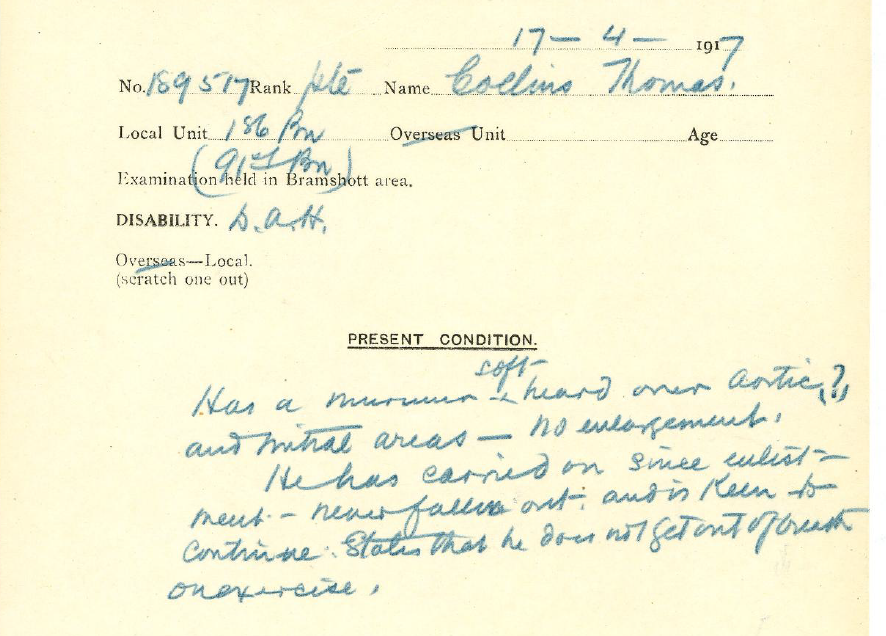 17 — 4 — 1917
No. 189517 Rank pte Name Collins Thomas.
Local Unit 186 Bn Overseas Unit Age
(91st Bn)
Examination held in Bramshott area.
DISABILITY. D.A.H.
Overseas—Local.
(scratch one out)
PRESENT CONDITION.
soft
Has a murmur - heard over aortic (?)
and mitral areas — no enlargement.
He has carried on since enlist-
ment - never fallen out. and is keen to
continue. States that he does not get out of breath
on exercise.